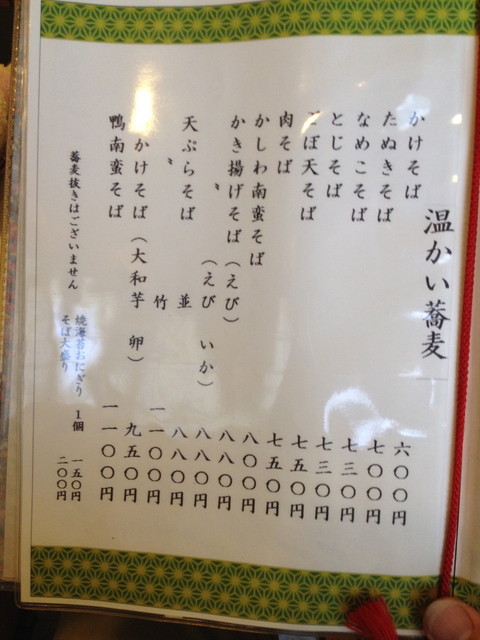 温かい蕎麦
かけそば 六〇〇円
たぬきそば 七〇〇円
なめこそば 七三〇円
とじそば 七三〇円
ごぼ天そば 七五〇円
肉そば 七五〇円
かしわ南蛮そば 八〇〇円
かき揚げそば(えび) 八八〇円
〃 (えび いか) 八八〇円
天ぷらそば 並 八八〇円
〃 竹 一一〇〇円
かけそば(大和芋 卵) 九五〇円
鴨南蛮そば 一一〇〇円
蕎麦抜きはございません
焼海苔おにぎり 1個 一五〇円
そば大盛り 二〇〇円